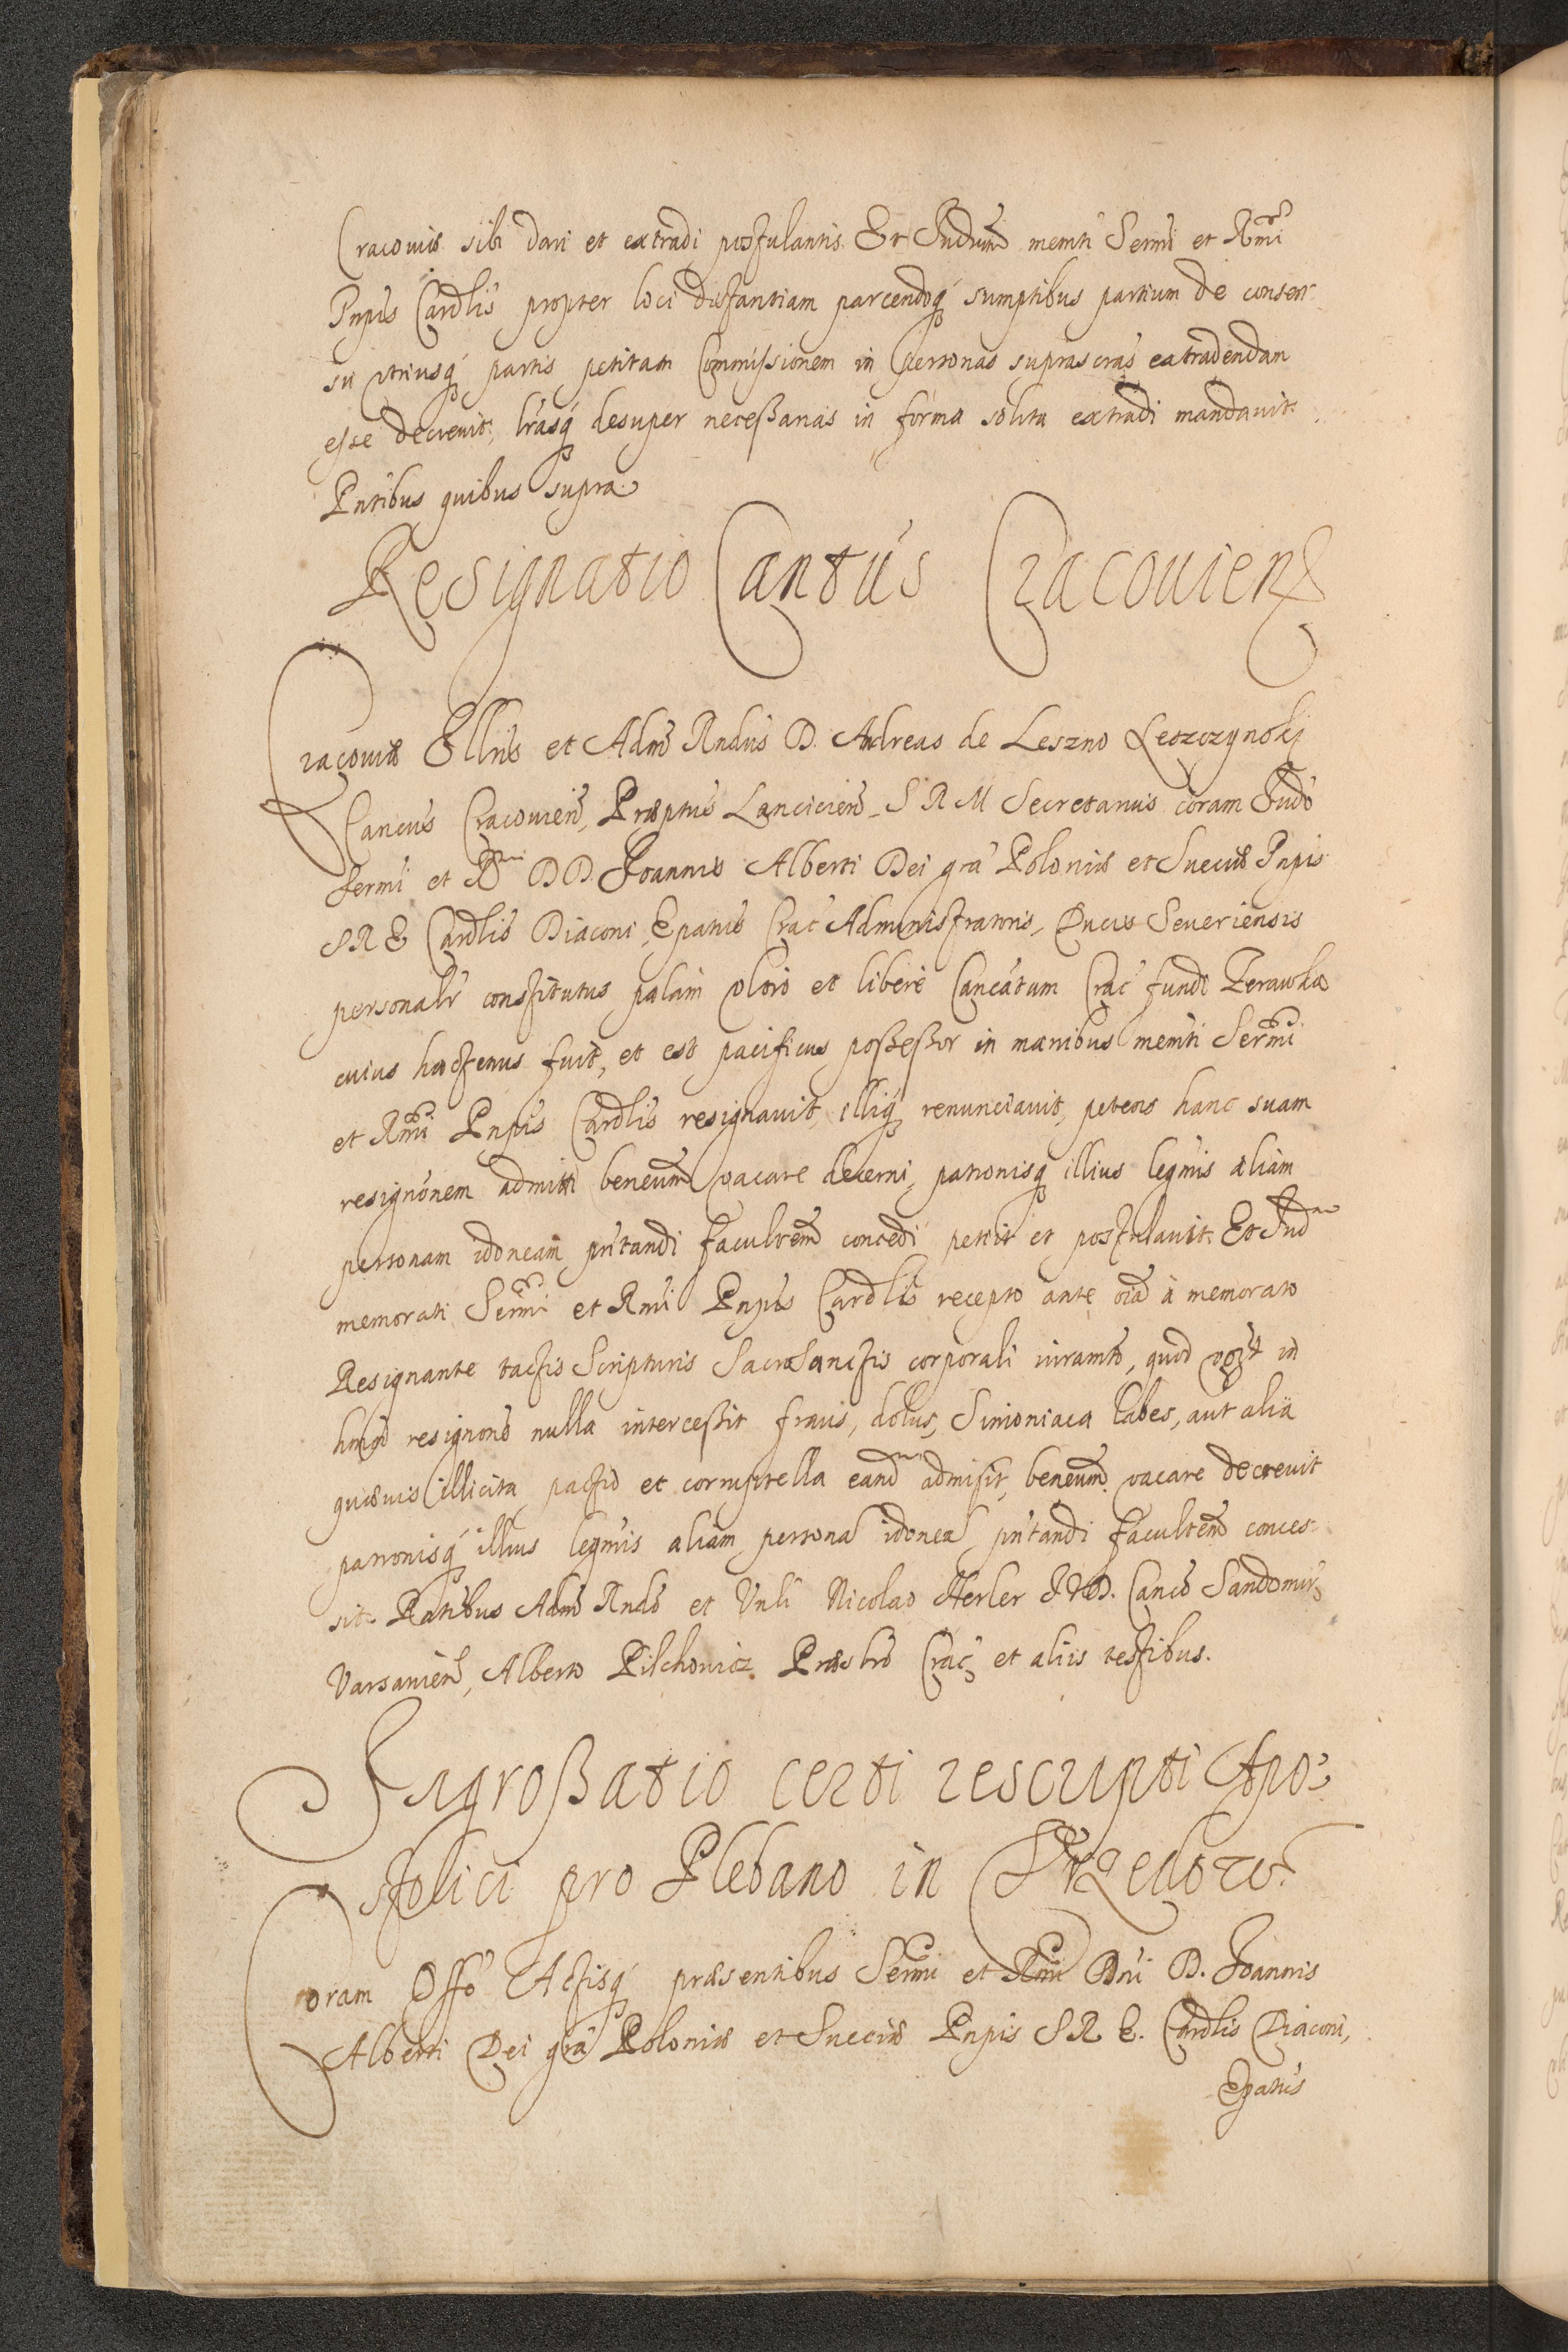 Cracoviæ sibi dari et extradi postulantis. Et Iudiuḿ memti Sermi et Rmi
Pnpis Cardlis propter loci distantiam parcendoq́ sumptibus partium de consen-
su vtriusq́ partis petitam Commissionem in personas suprascrás extradendam
esse decreuit, lrásq́ desuper necessarias in forma solita extradi mandauit.
Pntibus quibus supra.
Resignatio Cantús Cracouien
Cracouiæ Illris et Admo Rndus D. Andreas de Leszno Leszczynskj
Cancus Cracouien, Præptus Lancicien, S R M Secretarius coram Iudo
Sermi et R D D. Joannis Alberti Dei grá Poloniæ et Sueciæ Pnpis
S R E Cardlis Diaconi, Epatus Crac Administratoris, Ducis Seueriensis
personalr constitutus palam vltro et liberè Cancátum Crac fundi Zerawka
cuius hactenus fuit, et est pacificus possessor in manibus memti Sermi
et Rmi Pnpis Cardlis resignauit, illiq́ renunciauit, petens hanc suam
resignónem admitti beneum vacare decerni, patronisq́ illius legmis aliam
personam idoneam pntandi facultem concedi petiit et postulauit. Et Iud
memorati Sermi et Rmi Pnpis Cardlis recepto ante oia à memorato
Resignante tactis Scripturis Sacrosanctis corporali iuramto, quod in
hmoi resignone nulla intercessit fraus, dolus, Simoniaca labes, aut alia
quæuis illicita pactio et corruptella eand admisit, beneum vacare decreuit
patronisq́ illius legmis aliam persona idonea pntandi facultem conces-
sit. Pntibus Admo Rndo et Vnli Nicolao Herler I V D. Canco Sandomir,
Varsauien, Alberto Pilchowicz Præsbro Crac, et aliis testibus.
Ingrossatio certi rescripti Apo-
stolici pro Plebano in
Coram Offo Actisq́ præsentibus Sermi et Rmi Dni D. Joannis
Alberti Dei grá Poloniæ et Sueciæ Pnpis S R E. Cardlis Diaconi,
Epatus